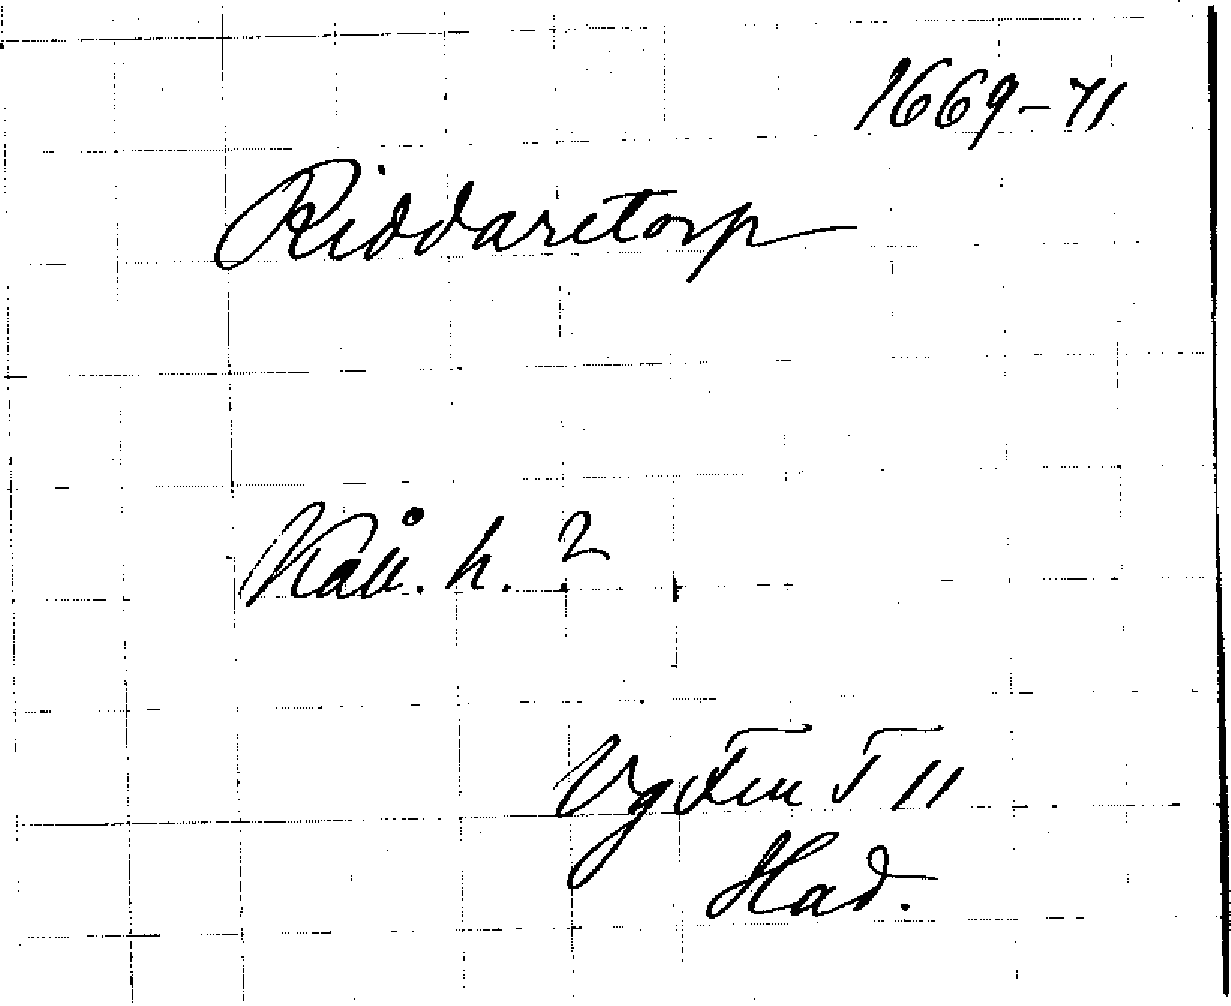 1669-71
Riddaretorp
Kåll. h. 2
Vg Fru T 11
Had.